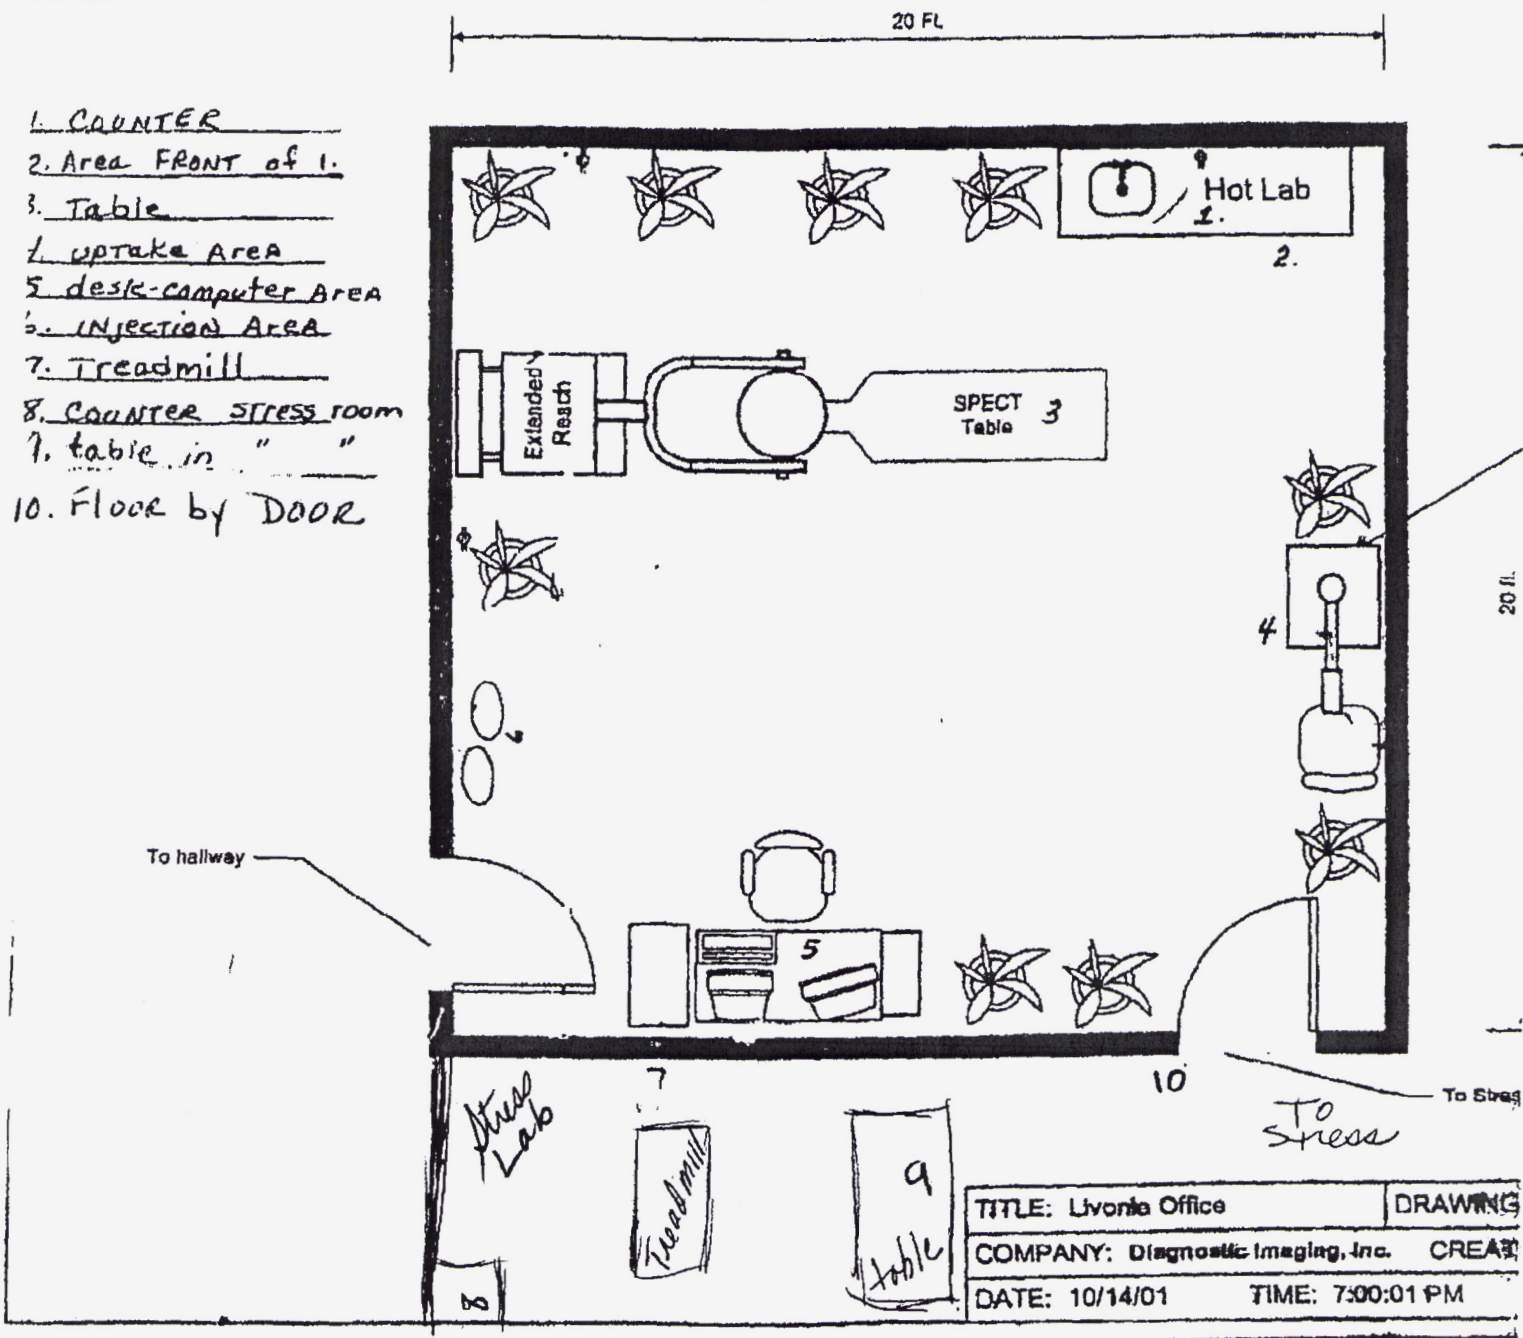 20 Ft.
1. COUNTER
2. Area FRONT of 1.
3. Table
4. uptake Area
5 desk-computer Area
6. INjection Area
7. Treadmill
8. COUNTER stress room
9. table in " "
10. Floor by DOOR
Hot Lab
1.
2.
Extended
Reach
SPECT
Table
3
20 ft.
4
6
To hallway
5
7
10
Stress
Lab
Treadmill
9
table
8
To Stres
To
Stress
TITLE: Livonia Office
DRAWING
COMPANY: Diagnostic Imaging, Inc.
CREAT
DATE: 10/14/01
TIME: 7:00:01 PM